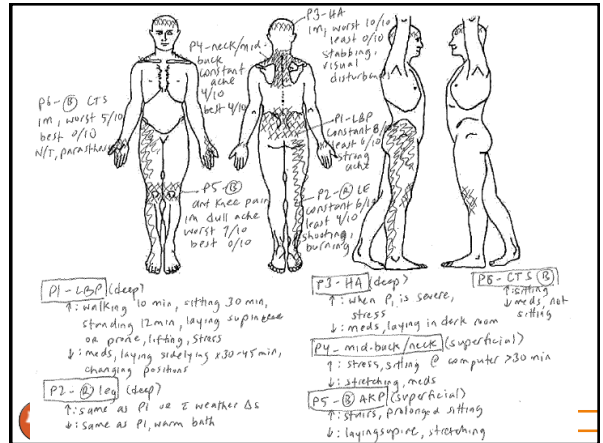 P3-HA
Im, worst 10/10
least 0/10
stabbing,
visual
disturbances
P4-neck/mid-
back
constant
ache
4/10
best 4/10
P6-Ⓑ CTS
Im, worst 5/10
best 0/10
N/T, parasthesia
P1-LBP
constant 8/10
least 6/10
strong
ache
P5-Ⓑ
ant knee pain
Im dull ache
worst 7/10
best 0/10
P2-Ⓡ LE
constant 6/10
least 4/10
shooting,
burning
P1-LBP (deep)
↑: walking 10 min, sitting 30 min,
standing 12 min, laying supine
or prone, lifting, stress
↓: meds, laying sidelying x30-45min,
changing positions
P2-Ⓡ leg (deep)
↑: same as P1 weather Δs
↓: same as P1, warm bath
P3-HA (deep)
↑: when P1 is severe,
stress
↓: meds, laying in dark room
P4-mid-back/neck (superficial)
↑: stress, sitting @ computer >30 min
↓: stretching, meds
P5-Ⓑ AKP (superficial)
↑: stairs, prolonged sitting
↓: laying supine, stretching
P6-CTS Ⓑ
↑ sitting
↓ meds, not
sitting